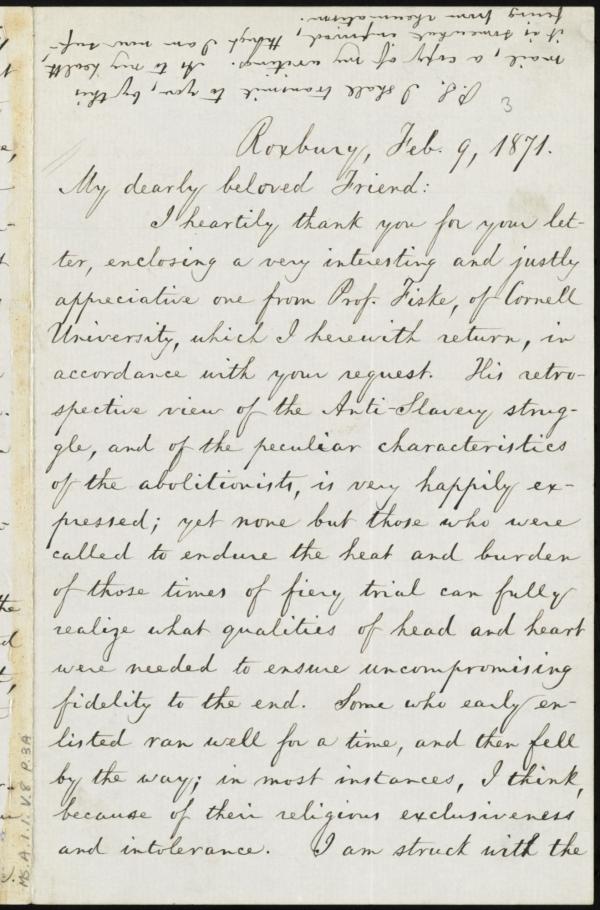 P.S. I shall transmit to you, by this
mail, a copy of my writings. As to my health
it is somewhat improved, though I am now suf-
fering from rheumatism.
3
Roxbury, Feb. 9, 1871.
My dearly beloved Friend:
I heartily thank you for your let-
ter, enclosing a very interesting and justly
appreciative one from Prof. Fiske, of Cornell
University, which I herewith return, in
accordance with your request. His retro-
spective view of the Anti-Slavery strug-
gle, and of the peculiar characteristics
of the abolitionists, is very happily ex-
pressed; yet none but those who were
called to endure the heat and burden
of those times of fiery trial can fully
realize what qualities of head and heart
were needed to ensure uncompromising
fidelity to the end. Some who early en-
listed ran well for a time, and then fell
by the way; in most instances, I think,
because of their religious exclusiveness
and intolerance. I am struck with the
Ms. A. 1.1. V. 8 P. 3A